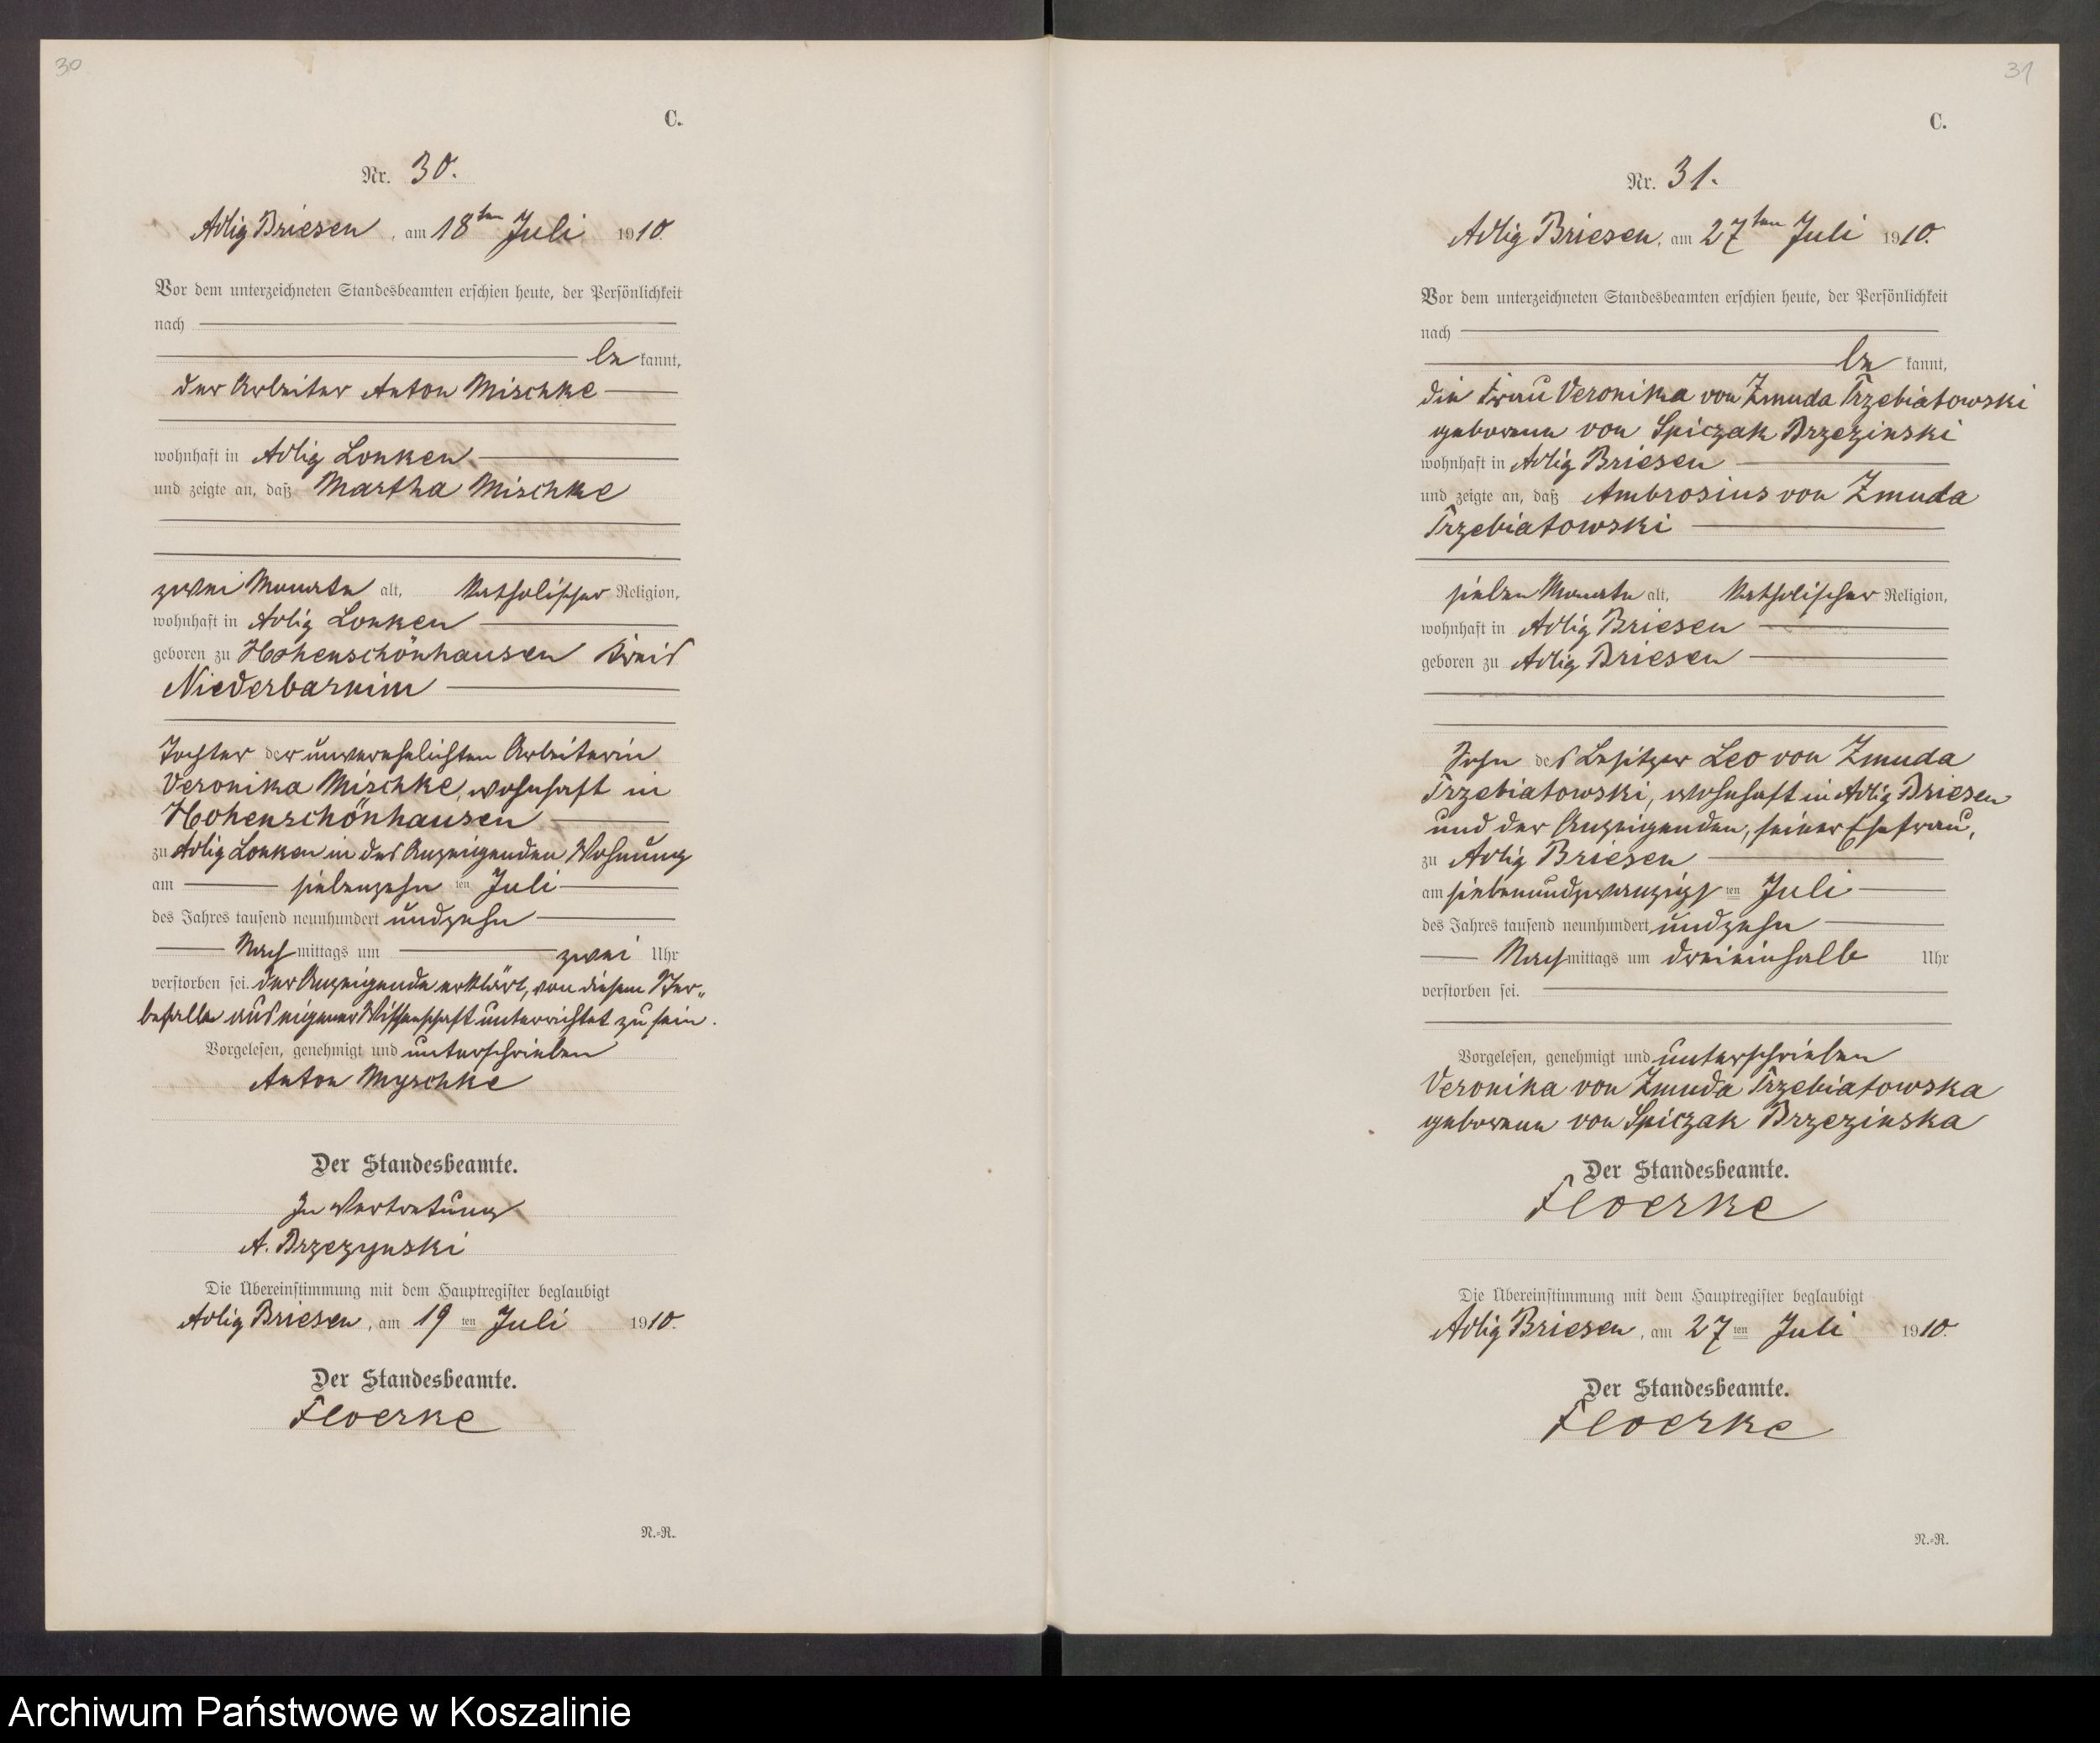 30
C.
Nr. 30.
Adlig Briesen, am 18ten Juli 1910.
Vor dem unterzeichneten Standesbeamten erschien heute, der Persönlichkeit
nach
be kannt,
der Arbeiter Anton Mischke
wohnhaft in Adlig Lonken
und zeigte an, daß Martha Mischke
zwei Monate alt, katholischer Religion,
wohnhaft in Adlig Lonken
geboren zu Hohenschönhausen Kreis
Niederbarnim
Tochter der unverehelichten Arbeiterin
Veronika Mischke, wohnhaft in
Hohenschönhausen
zu Adlig Lonken in des Anzeigenden Wohnung
am siebenzehn ten Juli
des Jahres tausend neunhundert undzehn
Nachmittags um zwei Uhr
verstorben sei. Der Anzeigende erklärt, von diesem Ster„
befalle aus eigener Wissenschaft unterrichtet zu sein.
Vorgelesen, genehmigt und unterschrieben
Anton Myschke
Der Standesbeamte.
In Vertretung
A. Brzezynski
Die Übereinstimmung mit dem Hauptregister beglaubigt
Adlig Briesen, am 19 ten Juli 1910.
Der Standesbeamte.
Floerke
N.=R.
31
C.
Nr. 31.
Adlig Briesen, am 27ten Juli 1910.
Vor dem unterzeichneten Standesbeamten erschien heute, der Persönlichkeit
nach
be kannt,
die Frau Veronika von Zmuda Trzebiatowski
geborene von Spiczak Brzezinski
wohnhaft in Adlig Briesen
und zeigte an, daß Ambrosius von Zmuda
Trzebiatowski
sieben Monate alt, katholischer Religion,
wohnhaft in Adlig Briesen
geboren zu Adlig Briesen
Sohn des Besitzer Leo von Zmuda
Trzebiatowski, wohnhaft in Adlig Briesen
und der Anzeigenden, seiner Ehefrau,
zu Adlig Briesen
am siebenundzwanzigs ten Juli
des Jahres tausend neunhundert undzehn
Nachmittags um dreieinhalb Uhr
verstorben sei.
Vorgelesen, genehmigt und unterschrieben
Veronika von Zmuda Trzebiatowska
geborene von Spiczak Brzezinska
Der Standesbeamte.
Floerke
Die Übereinstimmung mit dem Hauptregister beglaubigt
Adlig Briesen, am 27 ten Juli 1910.
Der Standesbeamte.
Floerke
N.=R.
Archiwum Państwowe w Koszalinie